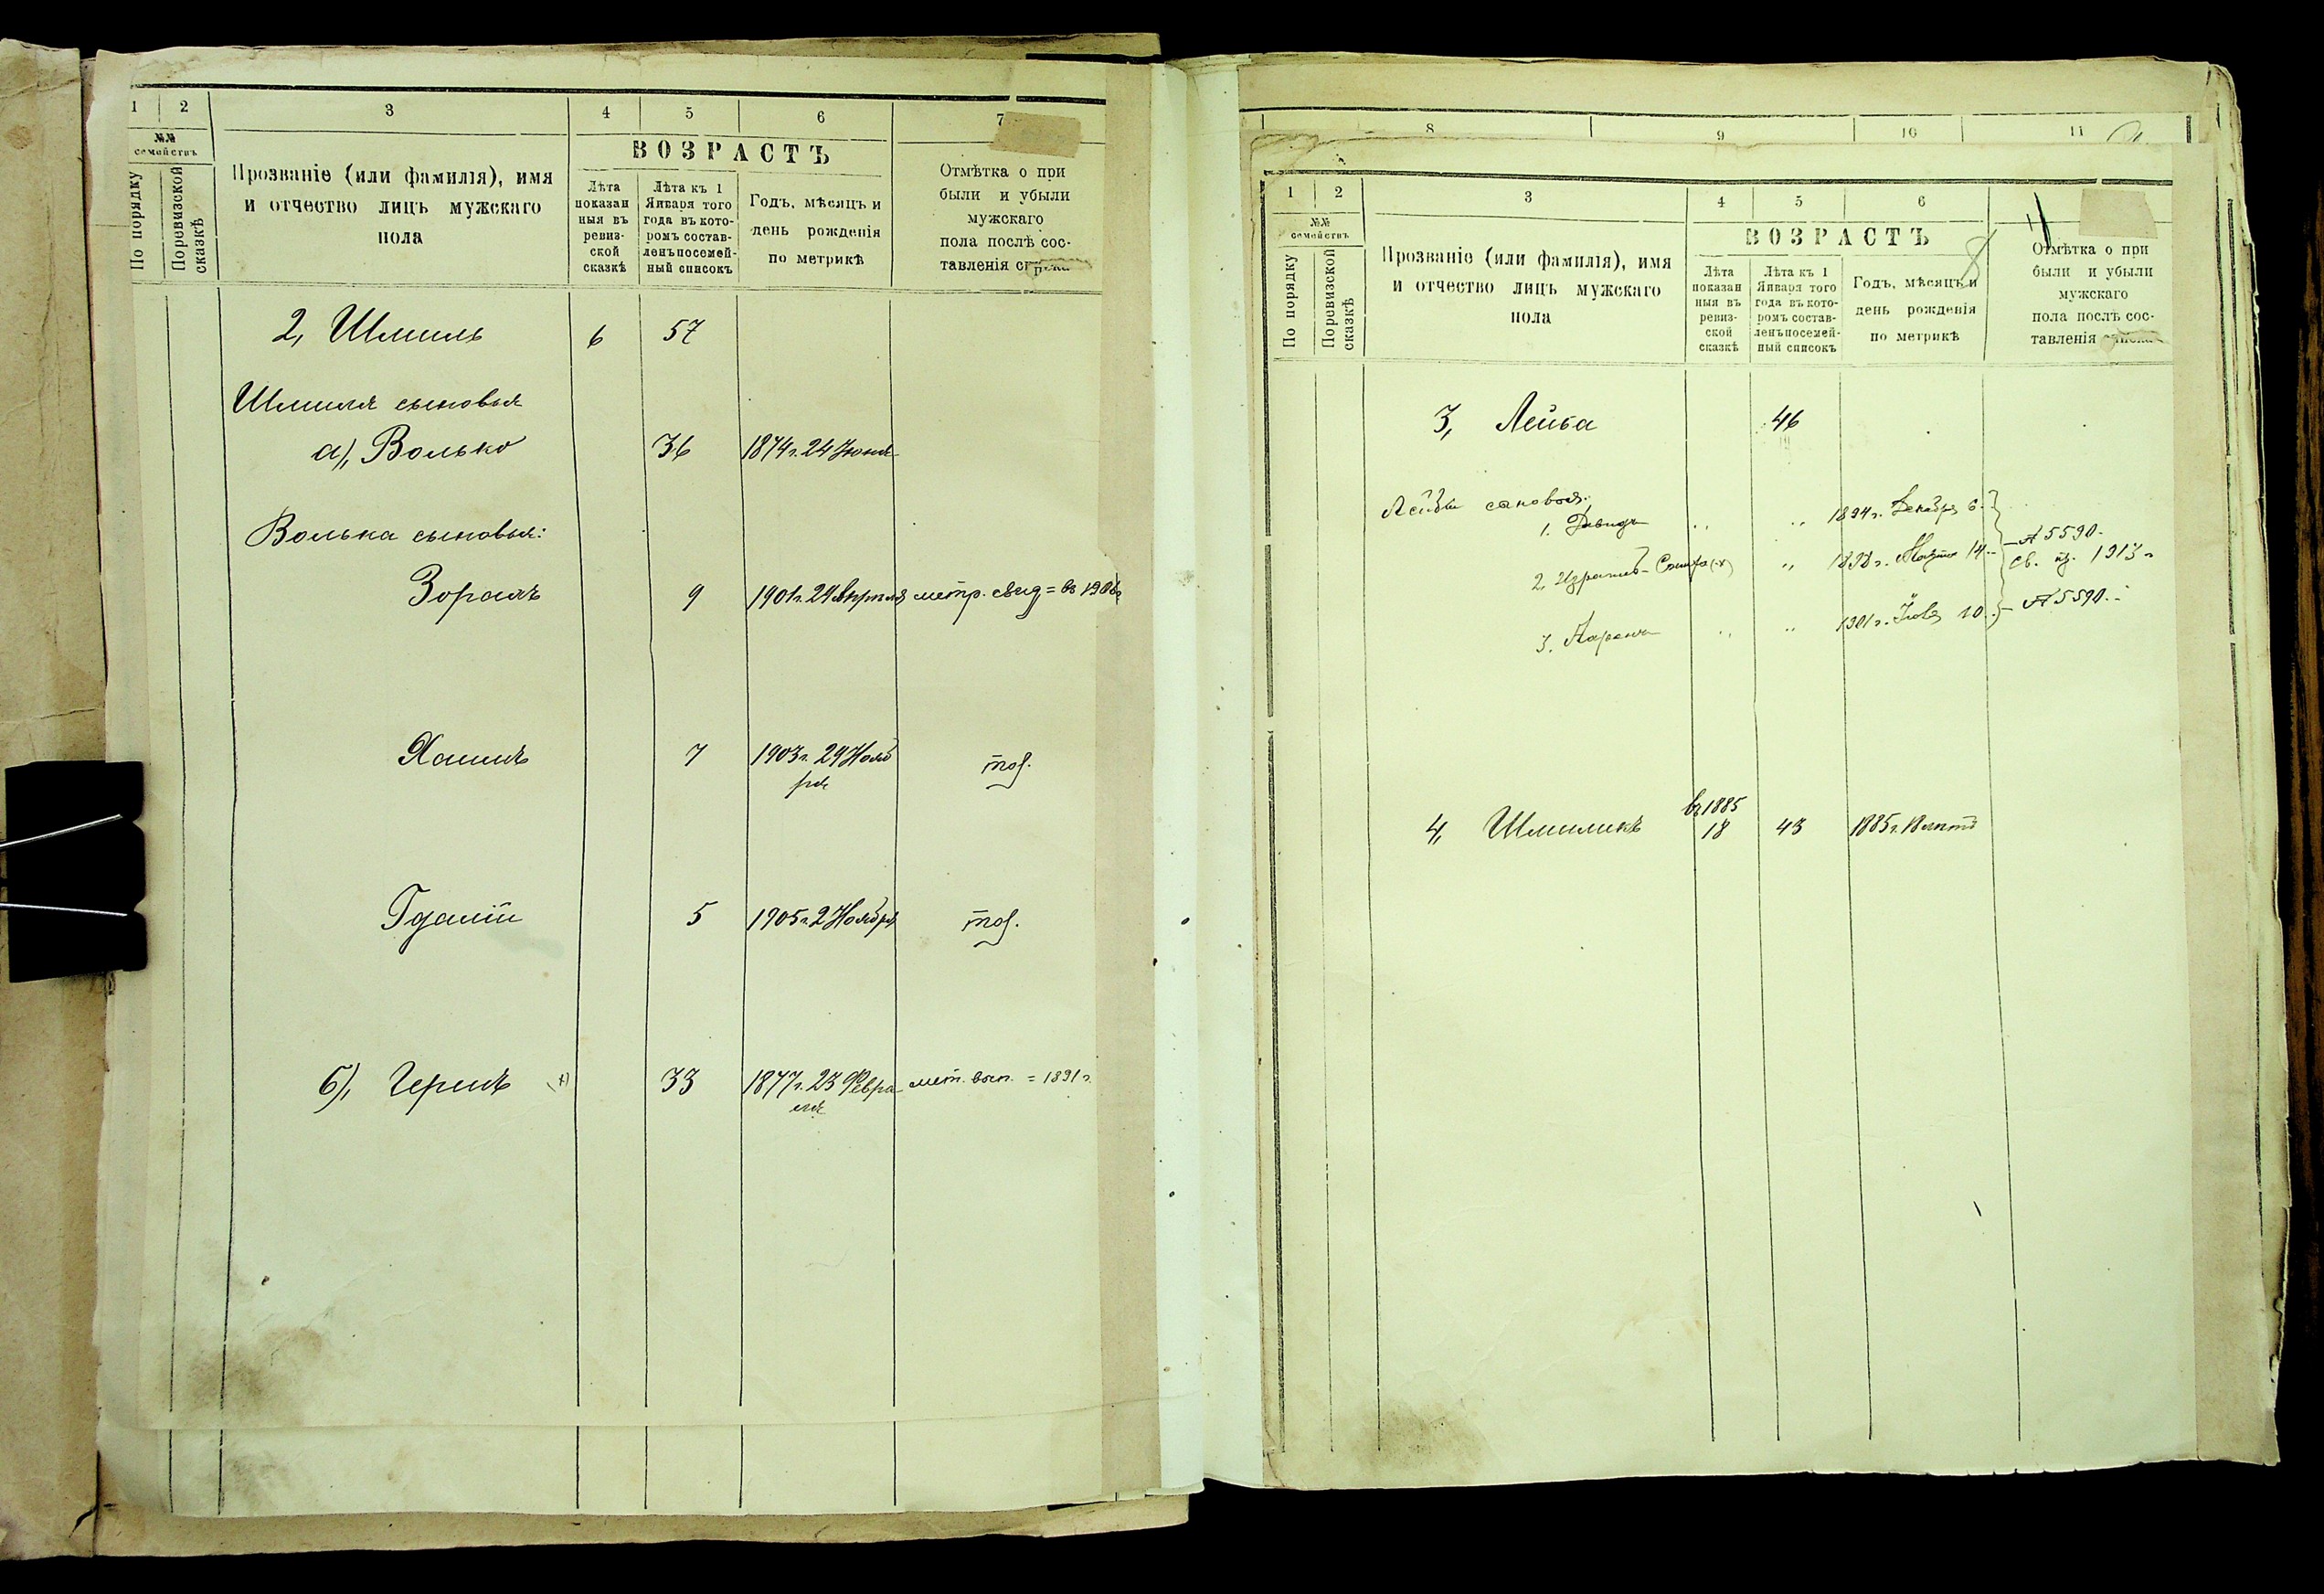 1 2 3 4 5 6 7
№№ семействъ
По порядку
По ревизской сказкѣ
Прозваніе (или фамилія), имя
и отчество лицъ мужскаго
пола
ВОЗРАСТЪ
Лѣта показан ныя въ ревиз- ской сказкѣ
Лѣта къ 1 Января того года въ кото- ромъ состав- ленъ посемей- ный списокъ
Годъ, мѣсяцъ и день рожденія по метрикѣ
Отмѣтка о при
были и убыли
мужскаго
пола послѣ сос-
тавленія
2, Шмиль 6 57
Шмиля сыновья
а), Волько 36 1874 г. 24 Юня
Волька сыновья:
9 1901 г. метр. свид =
7 1903 г. 29 Нояб
ря
тож.
5 1905 г. 2 Ноября тож.
б), Гершъ (х) 33 1877 г. 23 Февра мет. вып. = 1891 г.
ля
8 9 10 11
1 2 3 4 5 6
№№ семействъ
По порядку
По ревизской сказкѣ
Прозваніе (или фамилія), имя
и отчество лицъ мужскаго
пола
ВОЗРАСТЪ
Лѣта показан ныя въ ревиз- ской сказкѣ
Лѣта къ 1 Января того года въ кото- ромъ состав- ленъ посемей- ный списокъ
Годъ, мѣсяцъ и день рожденія по метрикѣ
Отмѣтка о при
были и убыли
мужскаго
пола послѣ сос-
тавленія
3, Лейба 46
Лейбы сыновья:
1. Давидъ 1894 г. Декабря 6. 5590.
2, (х) 14 1913 г
3. Ааронъ 1901 г. 10. 5590.
въ 1885
4, Шмиликъ 18 43 1885 г. 18 лѣтъ